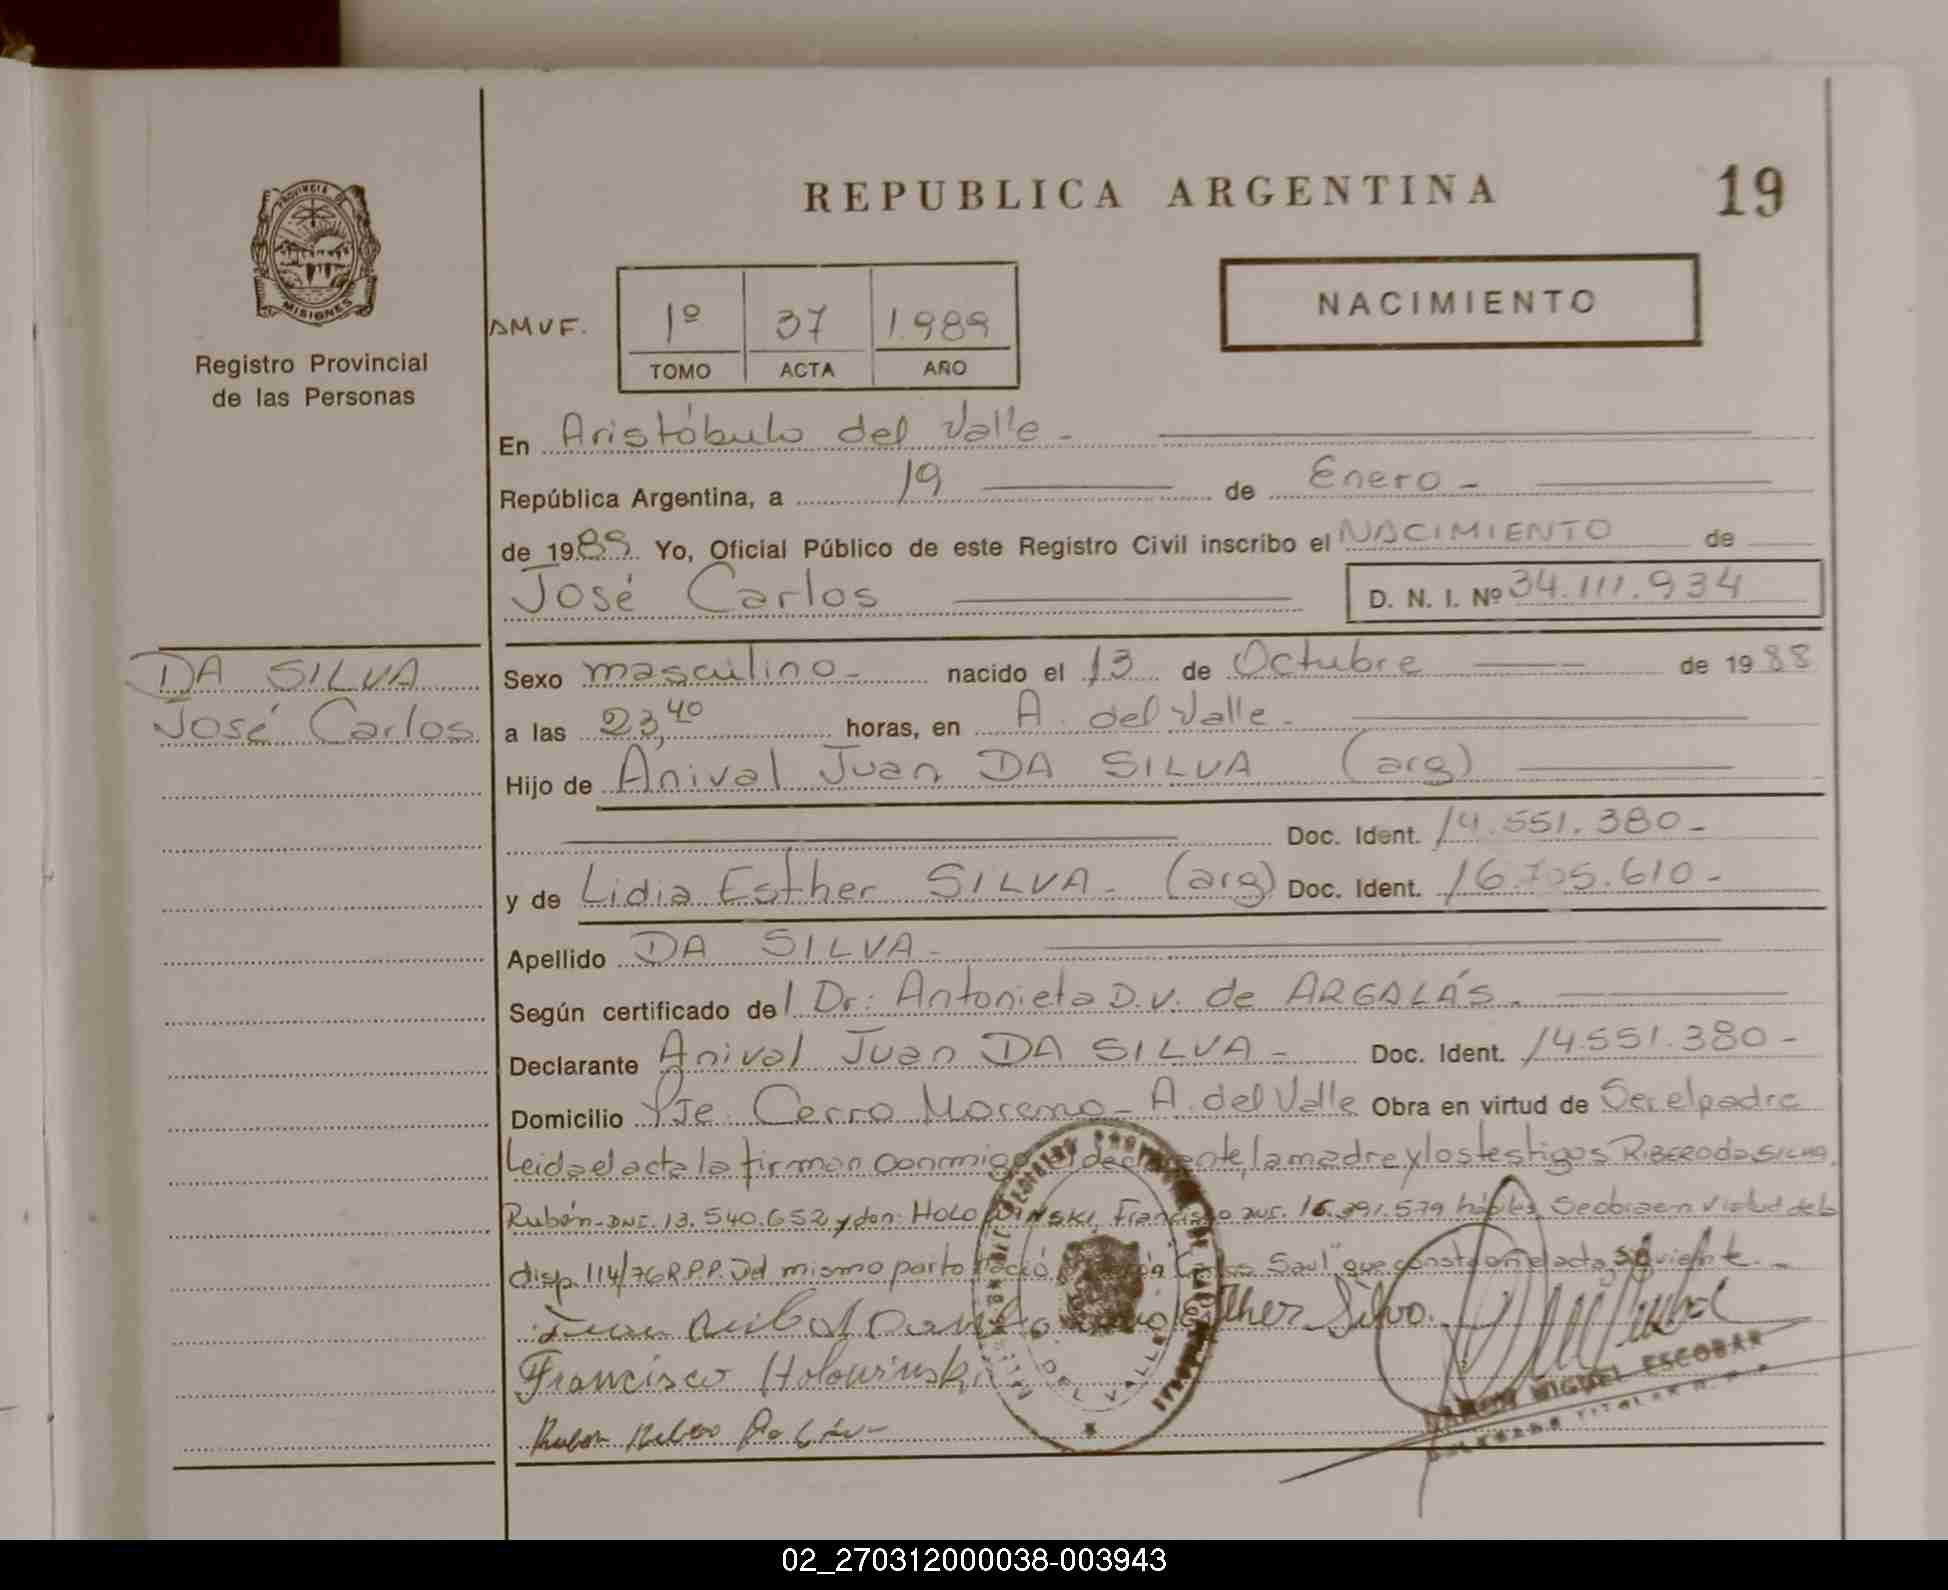 REPUBLICA ARGENTINA
19
PROVINCIA DE
MISIONES
Registro Provincial
de las Personas
NACIMIENTO
1º 37 1.989
TOMO ACTA AÑO
En Aristóbulo del Valle -
República Argentina, a 19 de Enero -
de 1989 Yo, Oficial Público de este Registro Civil inscribo el NACIMIENTO de
José Carlos D. N. I. Nº 34.111.934
DA SILVA
José Carlos
Sexo masculino - nacido el 13 de Octubre de 1988
a las 23,40 horas, en A. del Valle -
Hijo de Anival Juan DA SILVA (arg)
Doc. Ident. 14.551.380 -
y de Lidia Esther SILVA - (arg) Doc. Ident. 16.705.610 -
Apellido DA SILVA -
Según certificado de l Dr: Antonieta D.V. de ARGALÁS -
Declarante Anival Juan DA SILVA - Doc. Ident. 14.551.380 -
Domicilio Pje. Cerro Moreno - A. del Valle Obra en virtud de Ser el padre
Leida el acta la firman conmigo el declarante, la madre y los testigos RIBERO da SILVA,
Rubén - DNI. 13.540.652 y don: HOLOWINSKI, Francisco 16.391.579 hábiles Se obra en virtud de la
disp. 114/76 R.P.P. Del mismo parto nació Saul" que consta en el acta siguiente. -
Esther Silva.
Francisco Holowinski
Ruben Ribero Da Silva
DEL VALLE
MIGUEL ESCOBAR
TITULAR
02_270312000038-003943